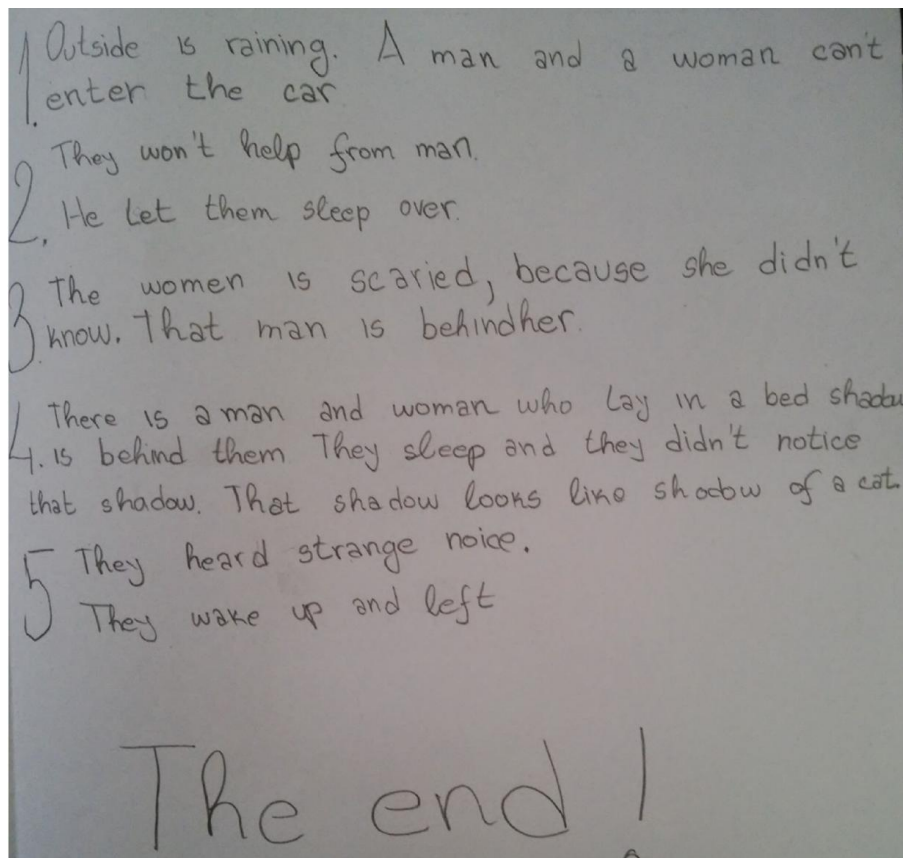 1. Outside is raining. A man and a woman can't
enter the car
They won't help from man.
2. He let them sleep over.
3. The women is scaried, because she didn't
know. That man is behindher.
There is a man and woman who lay in a bed shadow
4. is behind them They sleep and they didn't notice
that shadow. That shadow looks like shadow of a cat.
5 They heard strange noice.
They wake up and left
The end!